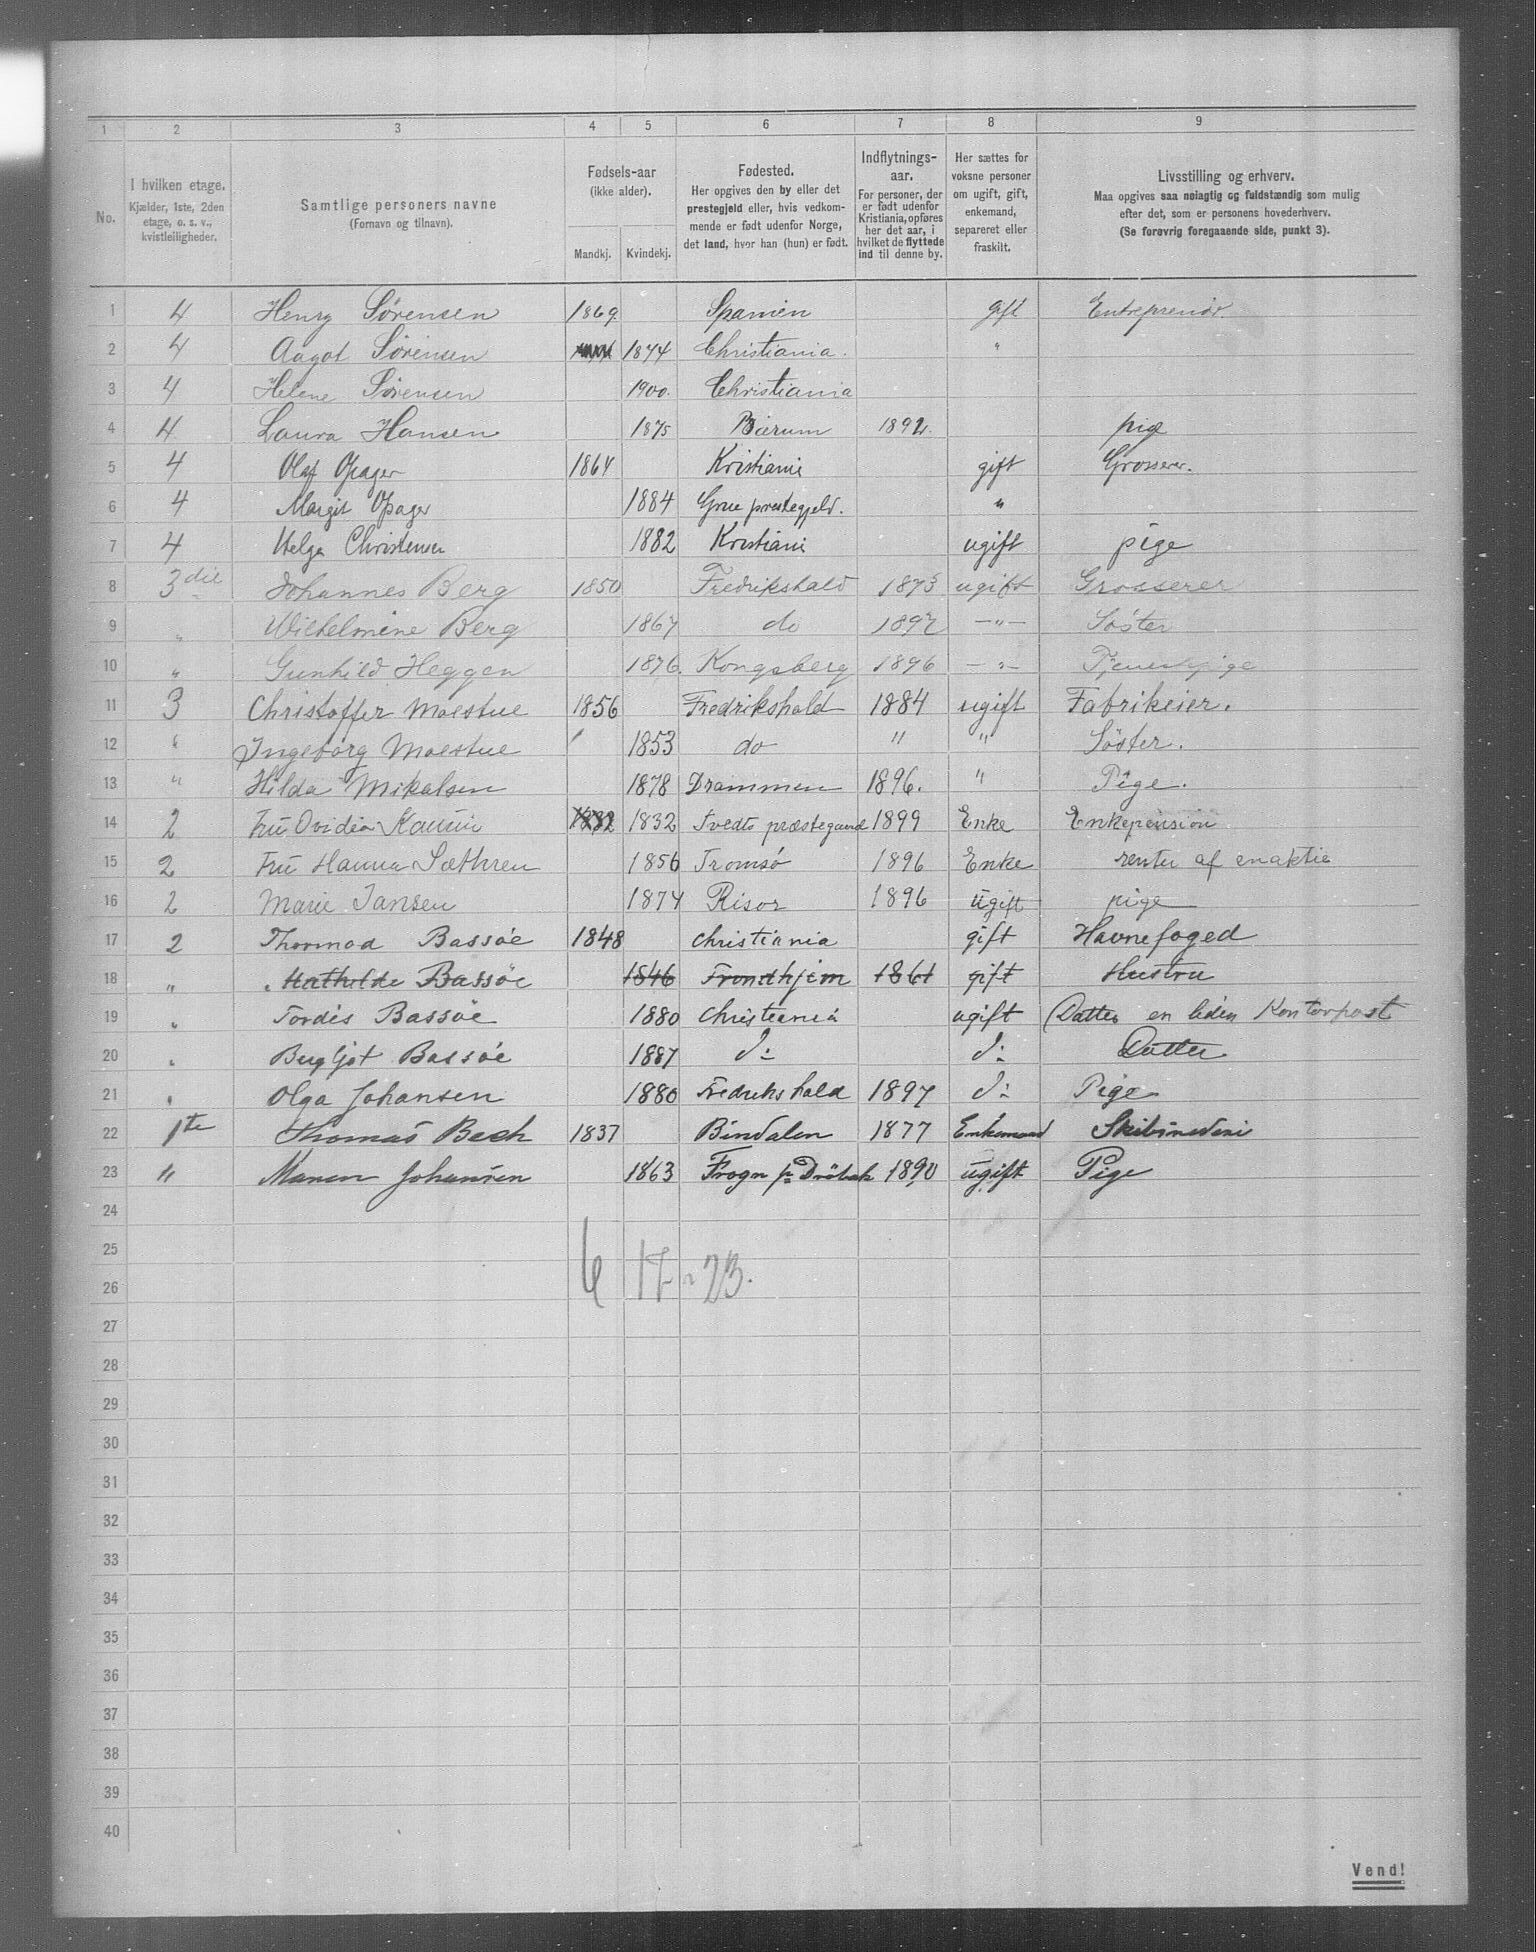 1 2 3 4 5 6 7 8 9
No.
I hvilken etage.
Kjælder, 1ste, 2den
etage, o. s. v.,
kvistleiligheder.
Samtlige personers navne
(Fornavn og tilnavn).
Fødsels-aar
(ikke alder).
Mandkj. Kvindekj.
Fødested.
Her opgives den by eller det
prestegjeld eller, hvis vedkom-
mende er født udenfor Norge,
det land, hvor han (hun) er født.
Indflytnings-
aar.
For personer, der
er født udenfor
Kristiania, opføres
her det aar, i
hvilket de flyttede
ind til denne by.
Her sættes for
voksne personer
om ugift, gift,
enkemand,
separeret eller
fraskilt.
Livsstilling og erhverv.
Maa opgives saa nøiagtig og fuldstændig som mulig
efter det, som er personens hovederhverv.
(Se forøvrig foregaaende side, punkt 3).
1 4 Henry Sørensen 1869 Spanien gift Entreprenør.
2 4 Aagot Sørensen 1874 Christiania. "
3 4 Helene Sørensen 1900. Christiania
4 4 Laura Hansen 1875 Bærum 1892. pige
5 4 Olaf Opager 1864 Kristiania gift Grosserer.
6 4 Margit Opager 1884 Grue prestegjeld. "
7 4 Helga Christensen 1882 Kristiania ugift pige
8 3die Johannes Berg 1850 Fredrikshald 1875 ugift Grosserer
9 " Wilhelmine Berg 1867 do 1897 —"— Søster
10 " Gunhild Heggen 1876. Kongsberg 1896 —"— Tjenestpige
11 3 Christoffer Moestue 1856 Fredrikshald 1884 ugift Fabrikeier.
12 " Ingeborg Moestue 1853 do " " Søster.
13 " Hilda Mikalsen 1878 Drammen 1896. " Pige.
14 2 Fru Ovidia 1832 1832 Tvedts præstegaard 1899 Enke Enkepension
15 2 Fru Hanna Sæthren 1856 Tromsø 1896 Enke renter af enaktie
16 2 Marie Jansen 1874 Risør 1896 ugift pige
17 2 Thormod Bassøe 1848 Christiania gift Havnefoged
18 " Mathilde Bassøe 1846 Trondhjem 1861 gift Hustru
19 " Tordis Bassøe 1880 Christiania ugift (Datter en liden Kontorpost
20 " Bergljot Bassøe 1887 d: d: Datter
21 " Olga Johansen 1880 Fredrikshald 1897 d: Pige
22 1te Thomas Bech 1837 Bindalen 1877 Enkemand
23 " Maren Johansen 1863 Frogn pr Drøbak 1890 ugift Pige
24
25
6 17 = 23.
26
27
28
29
30
31
32
33
34
35
36
37
38
39
40
Vend!